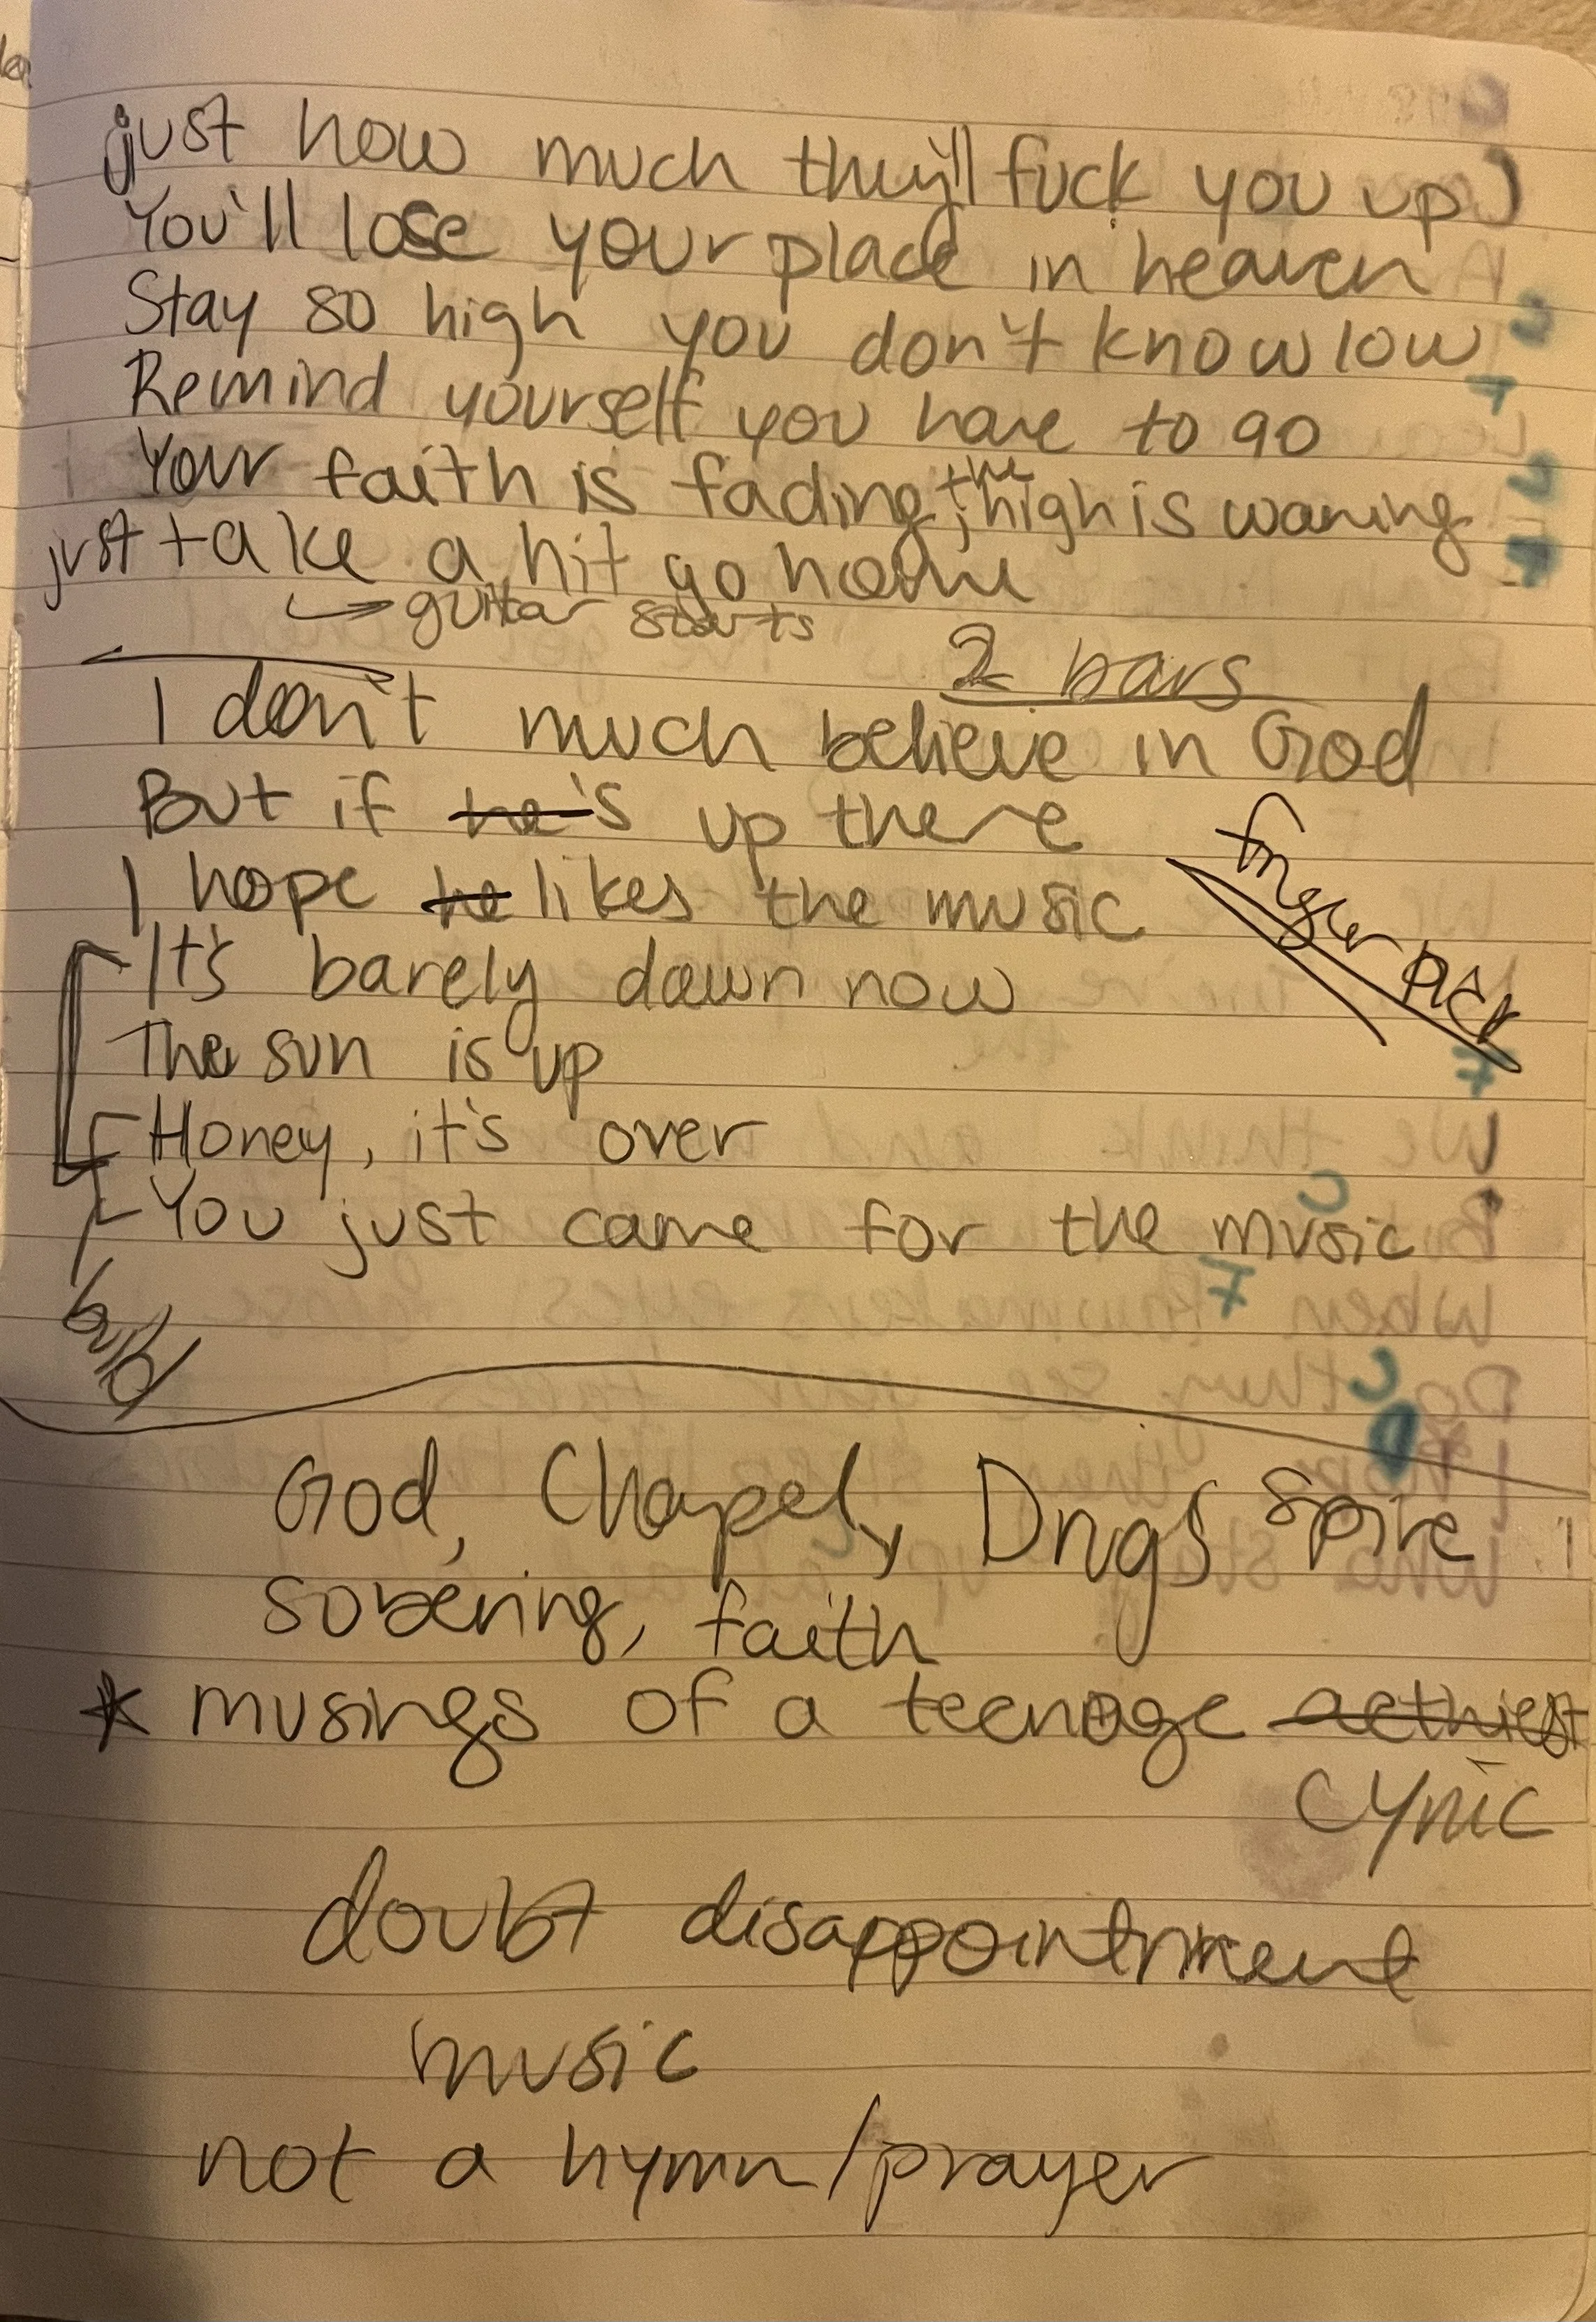 just how much they'll fuck you up)
You'll lose your place in heaven
Stay so high you don't know low
Remind yourself you have to go
Your faith is fading, the high is waning
just take a hit go home
guitar starts
2 bars
I don't much believe in God
But if he's up there
I hope he likes the music
finger pick
It's barely dawn now
The sun is up
Honey, it's over
You just came for the music
build
God, Chapel, Drugs spire
sobering, faith
* musings of a teenage aethiest
cynic
doubt disappointment
music
not a hymn/prayer